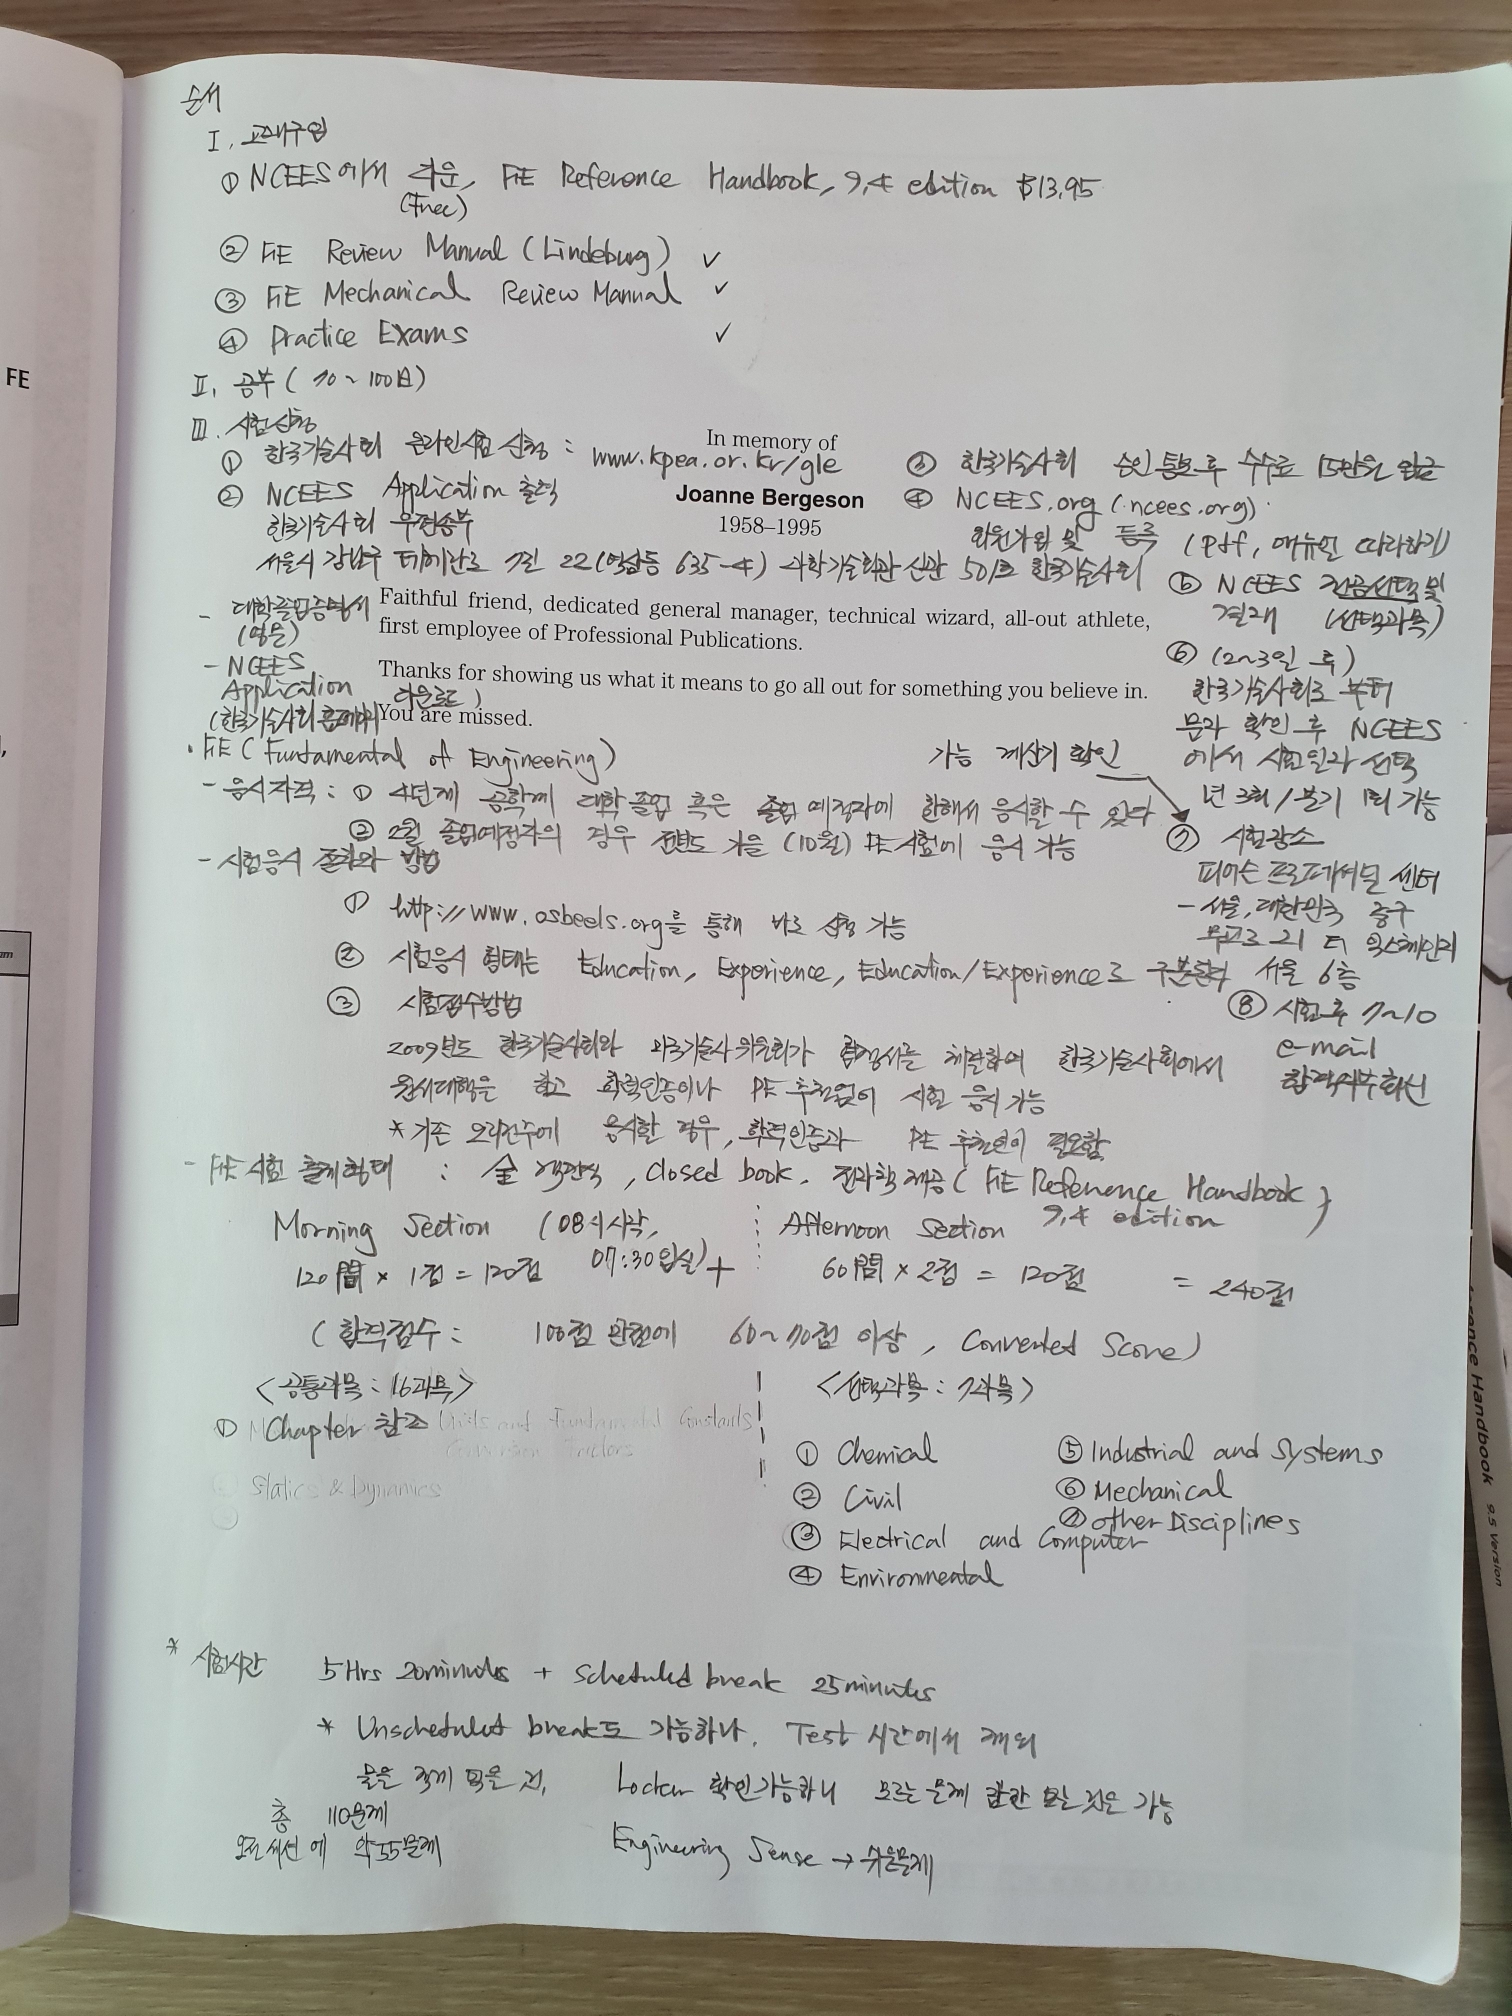 순서
I. 교재구입
① NCEES에서 다운, FE Reference Handbook, 9.4 edition $13.95
(Free)
② FE Review Manual (Lindeburg) ✓
③ FE Mechanical Review Manual ✓
④ Practice Exams ✓
II. 공부 (70~100日)
III. 시험신청
① 한국기술사회 온라인시험 신청 : www.kpea.or.kr/gle
② NCEES Application 출력
한국기술사회 우편송부
서울시 강남구 테헤란로 7길 22 (역삼동 635-4) 과학기술회관 신관 501호 한국기술사회
- 대학졸업증명서
(영문)
- NCEES
Application
(한국기술사회 홈페이지 다운로드)
In memory of
Joanne Bergeson
1958–1995
Faithful friend, dedicated general manager, technical wizard, all-out athlete,
first employee of Professional Publications.
Thanks for showing us what it means to go all out for something you believe in.
You are missed.
③ 한국기술사회 승인 통보 후 수수료 15만원 입금
④ NCEES.org (ncees.org)
회원가입 및 등록 (pdf, 매뉴얼 따라하기)
⑤ NCEES 전공선택 및
결재 (선택과목)
⑥ (2~3일 후)
한국기술사회로 부터
문자 확인 후 NCEES
에서 시험일자 선택
년 3회/분기 1회 가능
가능 계산기 확인
⑦ 시험장소
피어슨 프로페셔널 센터
- 서울, 대한민국 중구
무교로 21 더 익스체인지
서울 6층
⑧ 시험후 7~10
e-mail
합격여부확인
• FE (Fundamental of Engineering)
- 응시자격 : ① 4년제 공학계 대학 졸업 혹은 졸업 예정자에 한해서 응시할 수 있다
② 2월 졸업예정자의 경우 전년도 가을 (10월) FE시험에 응시 가능
- 시험응시 절차와 방법
① http://www.osbeels.org를 통해 바로 신청 가능
② 시험응시 형태는 Education, Experience, Education/Experience로 구분한다
③ 시험접수방법
2009년도 한국기술사회와 미국기술사위원회가 협정서를 체결하여 한국기술사회에서
원서대행을 하고 학력인증이나 PE 추천없이 시험 응시 가능
* 기존 오리건주에 응시할 경우, 학력인증과 PE 추천인이 필요함
- FE시험 출제형태 : 全 객관식, closed book. 전과책 제공 (FE Reference Handbook
9.4 edition )
Morning Section (08시 시작,
07:30입실) +
120問 × 1점 = 120점
Afternoon Section
60問 × 2점 = 120점 = 240점
(합격점수 : 100점 만점에 60~70점 이상, Converted Score)
<공통과목 : 16과목>
① Chapter 참조
Units and Fundamental Constants
Conversion Factors
Statics & Dynamics
<선택과목 : 7과목>
① Chemical
② Civil
③ Electrical and Computer
④ Environmental
⑤ Industrial and Systems
⑥ Mechanical
⑦ other Disciplines
* 시험시간 5Hrs 20minutes + scheduled break 25minutes
* Unscheduled break도 가능하나, Test 시간에서 제외
물을 적게 먹을 것, Locker 확인가능하니 모르는 문제 잠깐 보는 것은 가능
총 110문제
오전세션에 약55문제 Engineering Sense → 쉬운문제
FE
erence Handbook 9.5 Version